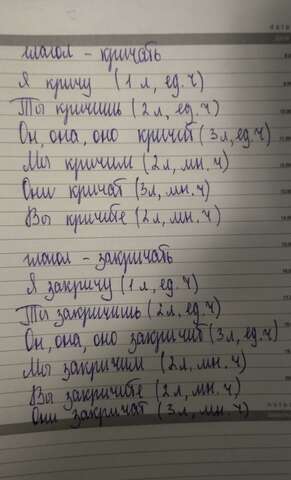 глагол - кричать
Я кричу (1 л, ед. ч)
Ты кричишь (2 л, ед. ч)
Он, она, оно кричит (3 л, ед. ч)
Мы кричим (2 л, мн. ч)
Они кричат (3 л, мн. ч)
Вы кричите (2 л, мн. ч)
глагол - закричать
Я закричу (1 л, ед. ч)
Ты закричишь (2 л, ед. ч)
Он, она, оно закричит (3 л, ед. ч)
Мы закричим (2 л, мн. ч)
Вы закричите (2 л, мн. ч)
Они закричат (3 л, мн. ч)